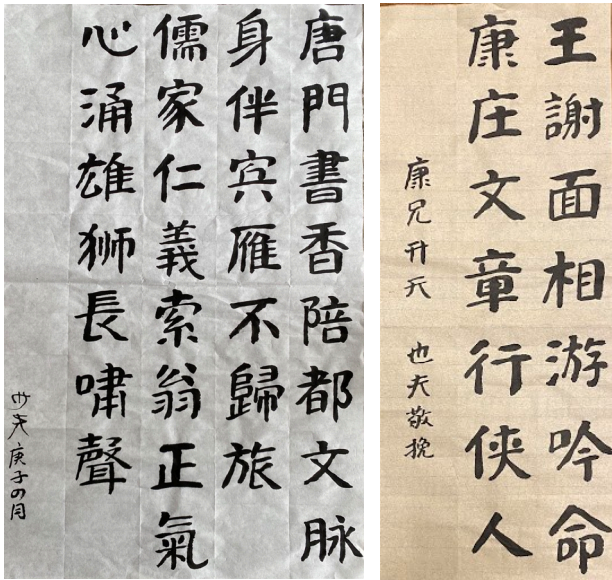 唐門書香陪都文脉
身伴宾雁不歸旅
儒家仁義索翁正氣
心涌雄狮長嘯聲
也夫 庚子四月
王謝面相游吟命
康庄文章行侠人
康兄升天 也夫敬挽